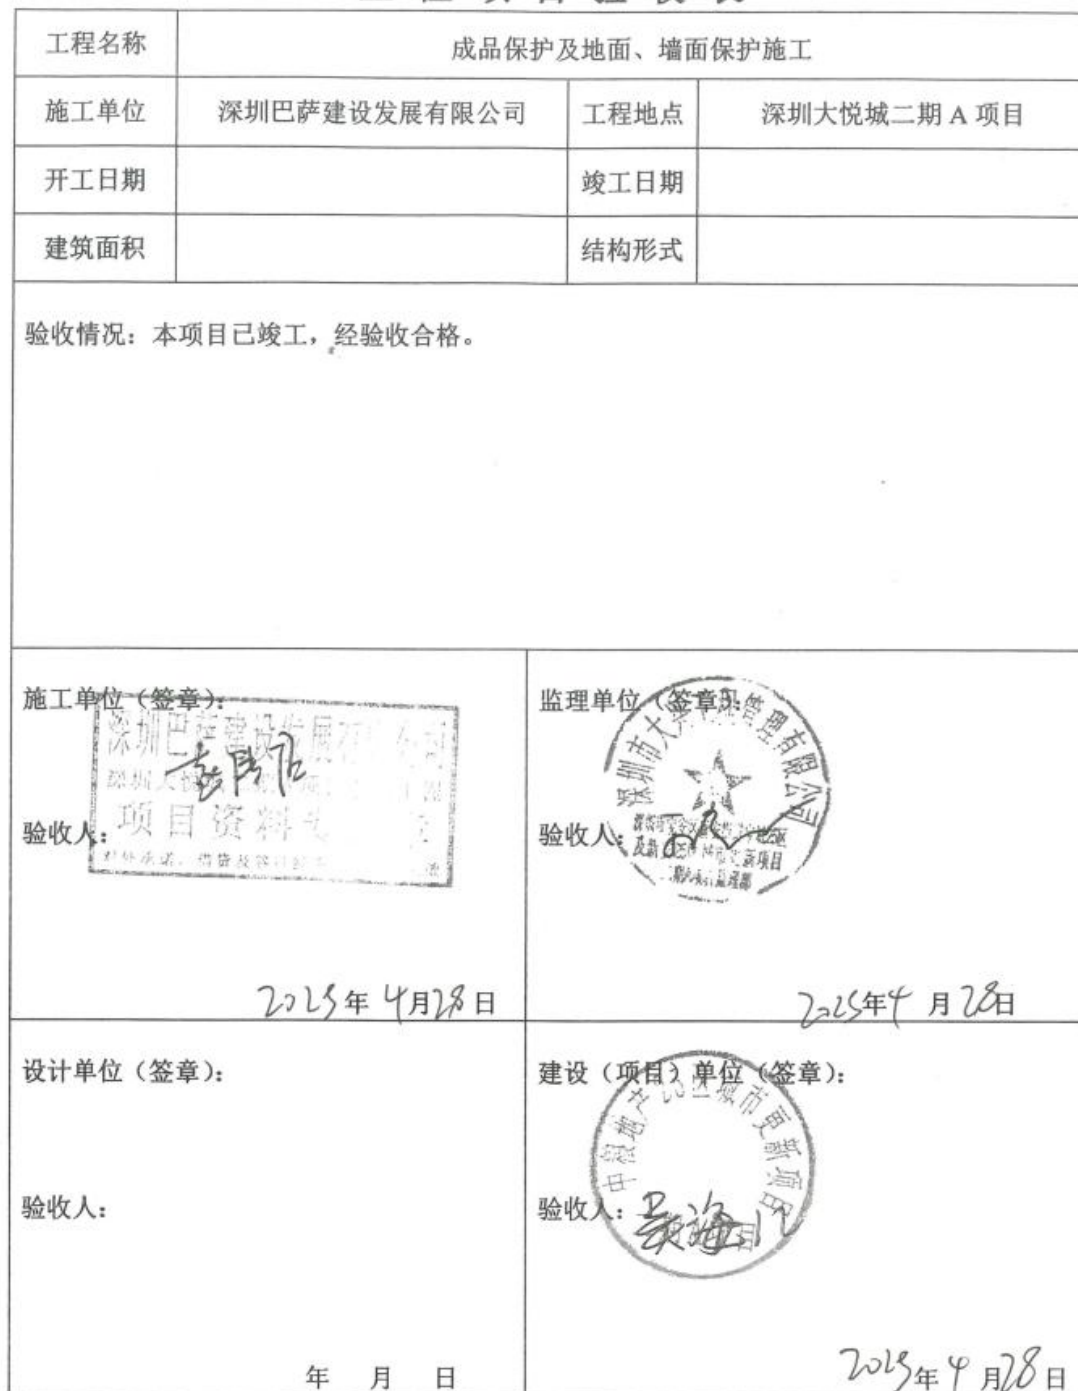 工程名称 成品保护及地面、墙面保护施工
施工单位 深圳巴萨建设发展有限公司 工程地点 深圳大悦城二期 A 项目
开工日期 竣工日期
建筑面积 结构形式
验收情况：本项目已竣工，经验收合格。
施工单位（签章）：
深圳巴萨建设发展有 公司
项目资料专
验收人：
2025年 4月28日
监理单位（签章）：
深圳市大 管理有限公司
验收人：
2025年4 月 28日
设计单位（签章）：
验收人：
年 月 日
建设（项目）单位（签章）：
中粮地产 25区城市更新项目
验收人：吴海
2025年4 月28日